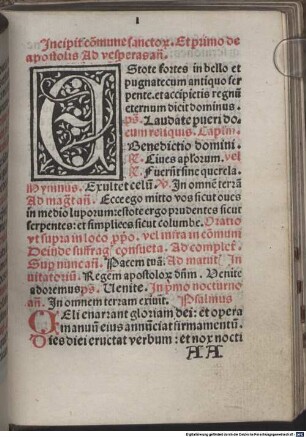 1
Incipit cōmune sanctoꝝ. Et primo de
apostolis Ad vesperas añ.
EStote fortes in bello et
pugnate cum antiquo ser
pente. et accipietis regnū
eternum dicit dominus
ps. Laudate pueri do
cum reliquis. Capłm.
Benedictio domini.
℟. Ciues apłorum. vel
℟. Fuerūt sine querela.
Hymnus. Exultet celū. ℣. In omnē terrā
Ad mag̃t añ. Ecce ego mitto vos sicut oues
in medio luporum: estote ergo prudentes sicut
serpentes: et simplices sicut columbe. Oratio
vt supra in loco ꝓpo. vel infra in cōmuni
Deinde suffrag̃. consueta. Ad complet̃.
Suꝑ nunc añ. Pacem tuā. Ad matuť In
uitatoriū. Regem apostoloꝝ dñm. Uenite
adoremus ps. Uenite. In p̃mo nocturno
añ. In omnem terram exiuit. Psalmus
CEli enarrant gloriam dei: et opera
manuū eius annūciat firmamentū.
Dies diei eructat verbum: et nox nocti
AA